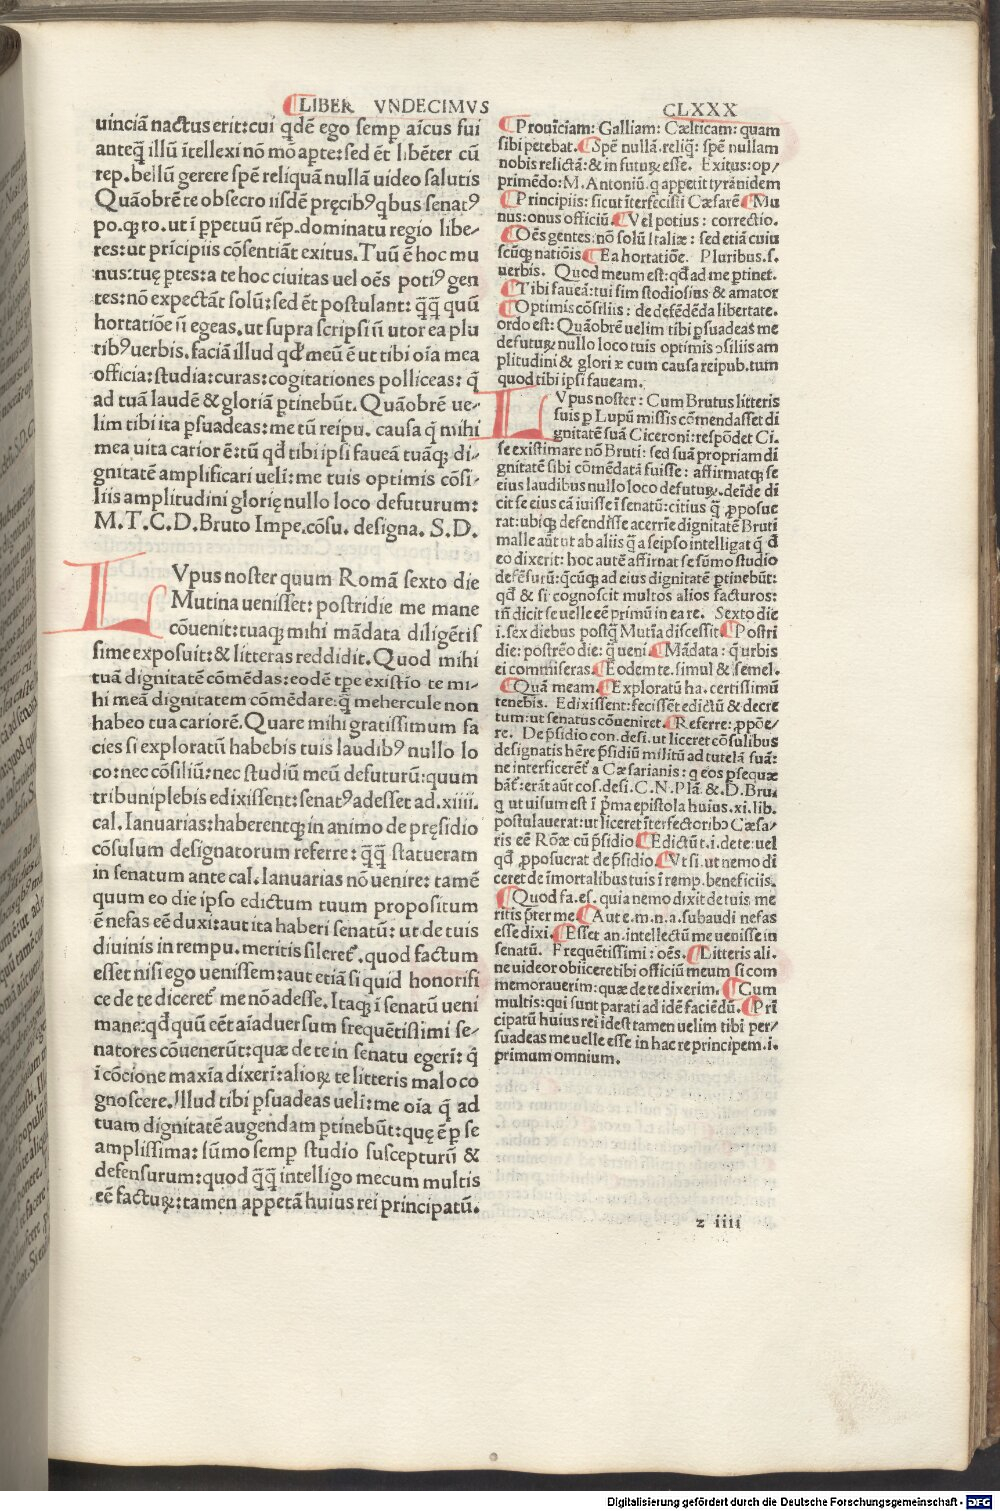 LIBER VNDECIMVS CLXXX
uinciā nactus erit: cui qdē ego semp aīcus fui
anteq̄ illū ītellexi nō mō apte: sed ēt libēter cū
rep. bellū gerere spē reliquā nullā uideo salutis
Quāobrē te obsecro iisdē pręcibꝰ qbus senatꝰ
po. q; ro. ut ī ppetuū rēp. dominatu regio libe⸗
res: ut prīcipiis cōsentiāt exitus. Tuū ē hoc mu
nus: tuę ptes: a te hoc ciuitas uel oēs potiꝰ gen
tes: nō expectāt solū: sed ēt postulant: q̄q̄ quū
hortatiōe ū egeas. ut supra scripsi ū utor ea plu
ribꝰ uerbis. faciā illud qđ meū ē ut tibi oīa mea
officia: studia: curas: cogitationes polliceas: q̄
ad tuā laudē & gloriā ptinebūt. Quāobrē ue⸗
lim tibi ita psuadeas: me tū reipu. causa q̄ mihi
mea uita carior ē: tū qđ tibi ipsi faueā tuāq; di⸗
gnitatē amplificari ueli: me tuis optimis cōsi⸗
liis amplitudini glorię nullo loco defuturum:
M. T. C. D. Bruto Impe. cōsu. designa. S. D.
LVpus noster quum Romā sexto die
Mutina uenisset: postridie me mane
cōuenit: tuaq; mihi mādata diligētis
sime exposuit: & litteras reddidit. Quod mihi
tuā dignitatē cōmēdas: eodē tpe existīo te mi⸗
hi meā dignitatem cōmēdare: q̄ mehercule non
habeo tua cariorē. Quare mihi gratissimum fa
cies si exploratū habebis tuis laudibꝰ nullo lo
co: nec cōsiliū: nec studiū meū defuturū: quum
tribuni plebis edixissent: senatꝰ adesset ad. xiiii.
cal. Ianuarias: haberentq; in animo de pręsidio
cōsulum designatorum referre: q̄q̄ statueram
in senatum ante cal. Ianuarias nō uenire: tamē
quum eo die ipso edictum tuum propositum
ē nefas eē duxi: aut ita haberi senatū: ut de tuis
diuinis in rempu. meritis sileret̄. quod factum
esset nisi ego uenissem: aut etiā si quid honorifi
ce de te diceret̄ me nō adesse. Itaq; ī senatū ueni
mane: qđ quū eēt aīaduersum frequētissimi se⸗
natores cōuenerūt: quæ de te in senatu egeri: q̄
ī cōcione maxīa dixeri: alioꝝ te litteris malo co
gnoscere. Illud tibi psuadeas ueli: me oīa q̄ ad
tuam dignitatē augendam ptinebūt: quę ē p se
amplissima: sūmo semp studio suscepturū &
defensurum: quod q̄q̄ intelligo mecum multis
eē factuꝝ: tamen appetā huius rei principatū.
Prouīciam: Galliam: Cælticam: quam
sibi petebat. Spē nullā. reliq: spē nullam
nobis relictā: & in futuꝝ esse. Exitus: op⸗
primēdo: M. Antoniū. q appetit tyrānidem
Principiis: sicut īterfecisti Cæsarē Mu
nus: onus officiū Vel potius: correctio.
Oēs gentes: nō solū Italiæ: sed etiā cuiu
scūq; natiōis Ea hortatiōe. Pluribus. s.
uerbis. Quod meum est: qđ ad me ptinet.
Tibi faueā: tui sim studiosius & amator
Optimis cōsiliis: de defēdēda libertate.
ordo est: Quāobrē uelim tibi psuadeas me
defutuꝝ nullo loco tuis optimis ↄsiliis am
plitudini & gloriæ cum causa reipub. tum
quod tibi ipsi faueam.
LVpus noster: Cum Brutus litteris
suis p Lupū missis cōmendasset di
gnitatē suā Ciceroni: respōdet Ci.
se existimare nō Bruti: sed suā propriam di
gnitatē sibi cōmēdatā fuisse: affirmatq; se
eius laudibus nullo loco defutuꝝ. deīde di
cit se eius cā iuisse ī senatū: citius q̄ pposue
rat: ubiq; defendisse acerrīe dignitatē Bruti
malle aūt ut ab aliis q̄ a seipso intelligat q̄ đ
eo dixerit: hoc autē affirmat se sūmo studio
defēsurū: q̄cūq; ad eius dignitatē ptinebūt:
qđ & si cognoscit multos alios facturos:
tn̄ dicit se uelle eē primū in ea re. Sexto die
i. sex diebus postq̄ Mutīa discessit. Postri
die: postrēo die: q̄ ueni. Mādata: q̄ urbis
ei commiseras. Eodem te. simul & semel.
Quā meam. Exploratū ha. certissimū
tenebis. Edixissent: fecissēt edictū & decre
tum: ut senatus cōueniret. Referre: ppōe⸗
re. De psidio con. desi. ut liceret cōsulibus
designatis hēre psidiū militū ad tutelā suā:
ne interficerēt̄ a Cæsarianis: q eos psequæ
bāt̄: erāt aūt cos. desi. C. N. Plā. & D. Bru.
q ut uisum est ī pma epistola huius. xi. lib.
postulauerat: ut liceret īterfectoribꝰ Cæsa⸗
ris eē Rōæ cū psidio Edictū t. i. de te: uel
qđ pposuerat de psidio. Vt si. ut nemo di
ceret de īmortalibus tuis ī remp. beneficiis.
Quod fa. es. quia nemo dixit de tuis me
ritis pter me Aut e. m. n. a. subaudi nefas
esse dixi. Esset an. intellectū me uenisse in
senatū. Frequētissimi: oēs. Litteris ali.
ne uideor obiicere tibi officiū meum si com
memorauerim: quæ de te dixerim. Cum
multis: qui sunt parati ad idē faciēdū. Pri
cipatū huius rei idest tamen uelim tibi per⸗
suadeas me uelle esse in hac re principem. i.
primum omnium.
z iiii
Digitalisierung gefördert durch die Deutsche Forschungsgemeinschaft - DFG